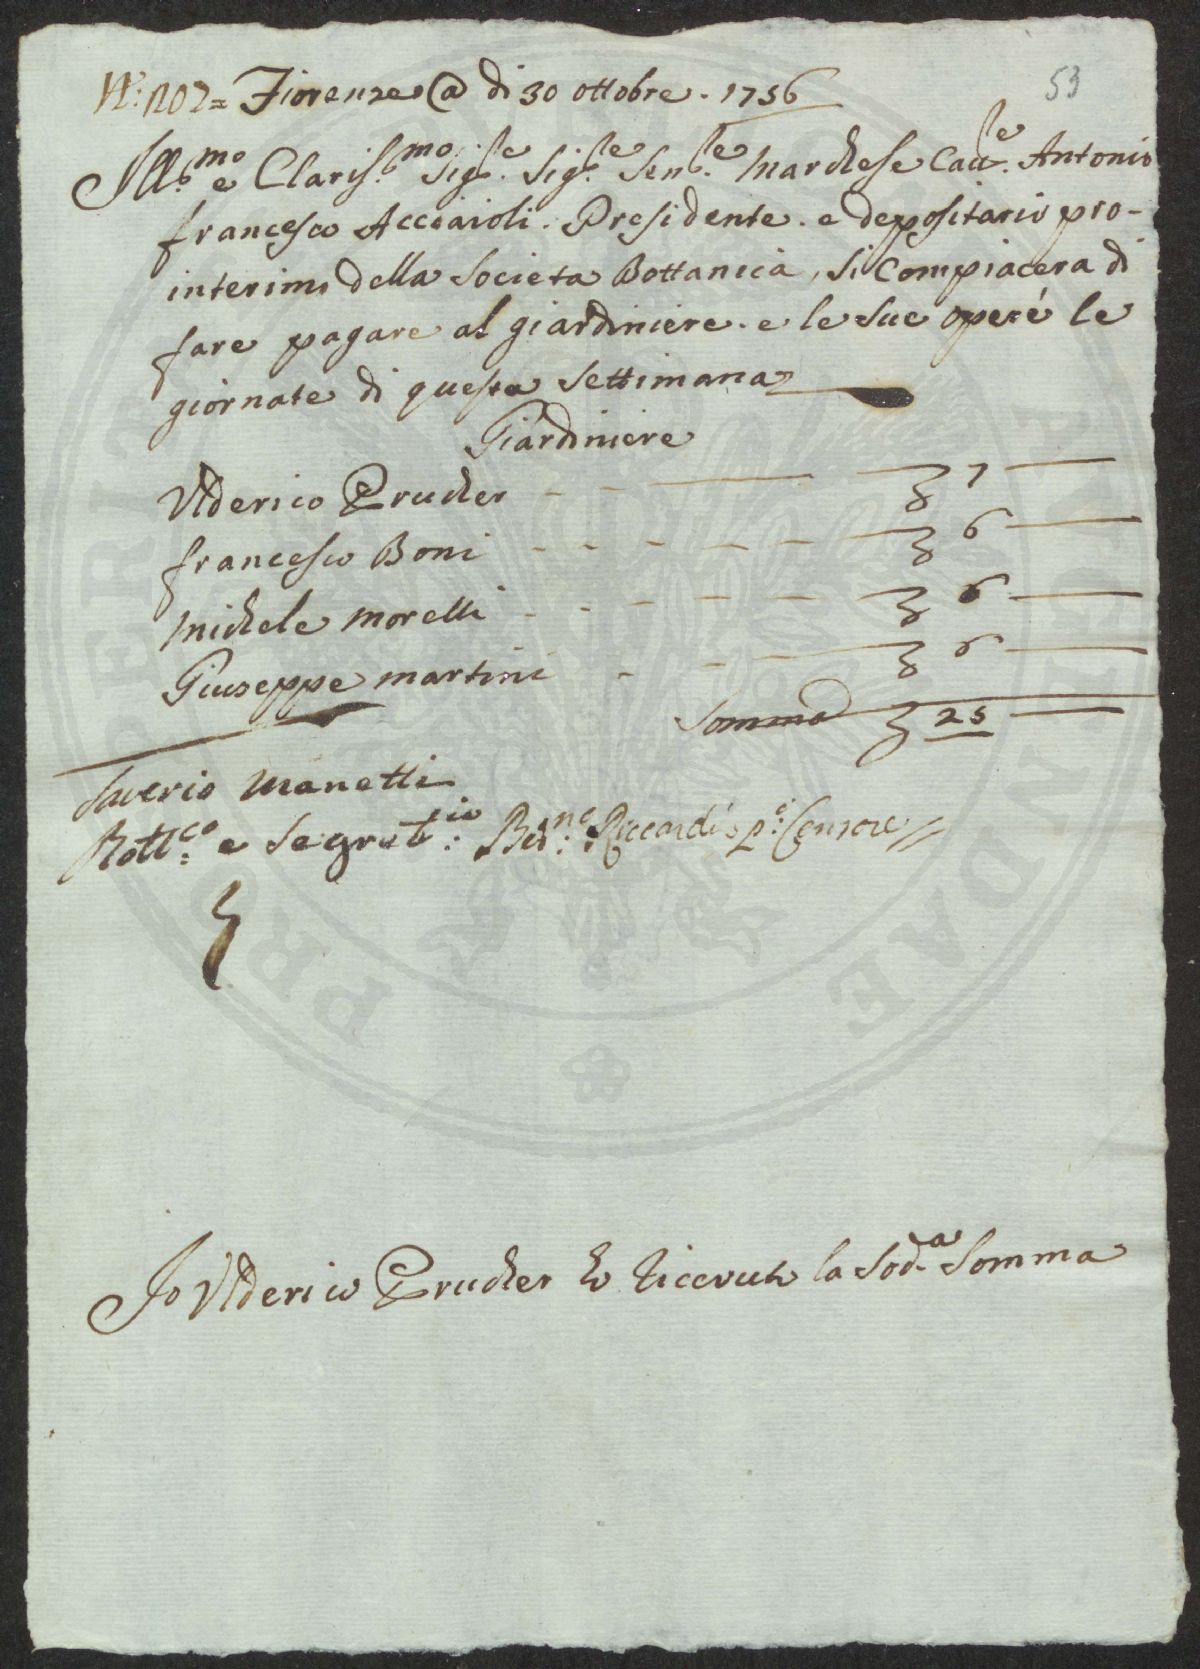 N.º 1202 = Fiorenze @ di 30 ottobre. 1756
53
Ill.mo e Claris.mo Sig.re Sig.re Sen.re Marchese Cau.re Antonio
francesco Acciaioli. Presidente. e depositario pro-
interimo della Societa Bottanica, Si Compiacera di
fare pagare al giardiniere. e le Sue opere le
giornate di questa Settimana
Giardiniere
Ulderico Prucher - - 7
francesco Boni - - - - - - 6
Michele Morelli - - - - - - 6
Giuseppe Martini - - 6
Somma 25
Saverio Manetti
Bott.co e Segret.rio Ber.ne Riccardi p.º Censore
Io Ulderico Prucher ho Riceuuto la Sod.a Somma